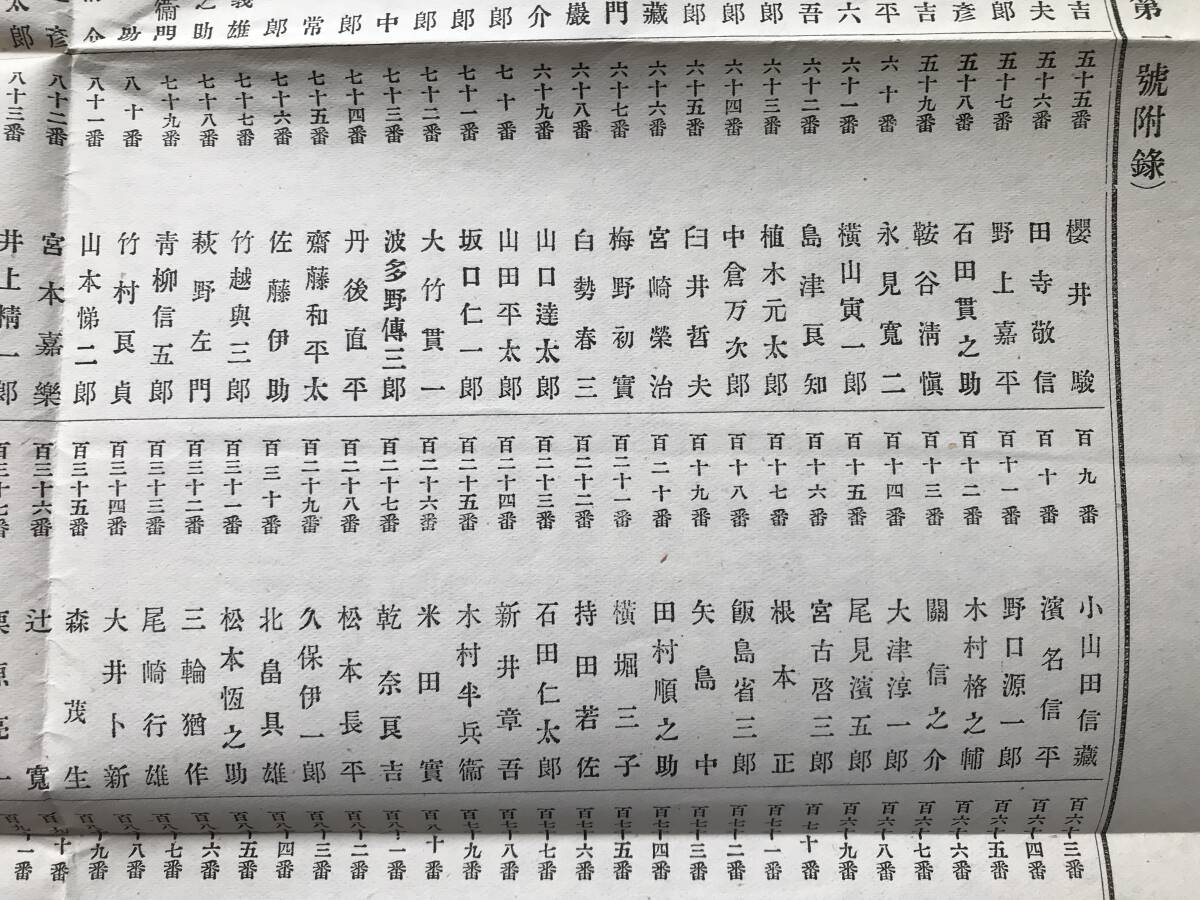 第一號附錄)
吉
夫
郎
彥
吉
平
六
吾
郎
郎
郎
藏
門
巖
介
郎
郎
郎
中
郎
常
郎
義雄
之助
衞門
助
介
彥
太郎
五十五番 櫻井駿
五十六番 田寺敬信
五十七番 野上嘉平
五十八番 石田貫之助
五十九番 鞍谷淸愼
六十番 永見寬二
六十一番 橫山寅一郎
六十二番 島津良知
六十三番 植木元太郎
六十四番 中倉万次郎
六十五番 臼井哲夫
六十六番 宮崎榮治
六十七番 梅野初實
六十八番 白勢春三
六十九番 山口達太郎
七十番 山田平太郎
七十一番 坂口仁一郎
七十二番 大竹貫一
七十三番 波多野傳三郎
七十四番 丹後直平
七十五番 齋藤和平太
七十六番 佐藤伊助
七十七番 竹越與三郎
七十八番 萩野左門
七十九番 靑柳信五郎
八十番 竹村良貞
八十一番 山本悌二郎
八十二番 宮本嘉樂
八十三番 井上精一郎
百九番 小山田信藏
百十番 濱名信平
百十一番 野口源一郎
百十二番 木村格之輔
百十三番 關信之介
百十四番 大津淳一郎
百十五番 尾見濱五郎
百十六番 宮古啓三郎
百十七番 根本正
百十八番 飯島省三郎
百十九番 矢島中
百二十番 田村順之助
百二十一番 橫堀三子
百二十二番 持田若佐
百二十三番 石田仁太郎
百二十四番 新井章吾
百二十五番 木村半兵衞
百二十六番 米田實
百二十七番 乾奈良吉
百二十八番 松本長平
百二十九番 久保伊一郎
百三十番 北畠具雄
百三十一番 松本恆之助
百三十二番 三輪猶作
百三十三番 尾崎行雄
百三十四番 大井卜新
百三十五番 森茂生
百三十六番 辻寬
百三十七番 栗原亮一
百六十三番
百六十四番
百六十五番
百六十六番
百六十七番
百六十八番
百六十九番
百七十番
百七十一番
百七十二番
百七十三番
百七十四番
百七十五番
百七十六番
百七十七番
百七十八番
百七十九番
百八十番
百八十一番
百八十二番
百八十三番
百八十四番
百八十五番
百八十六番
百八十七番
百八十八番
百八十九番
百九十番
百九十一番